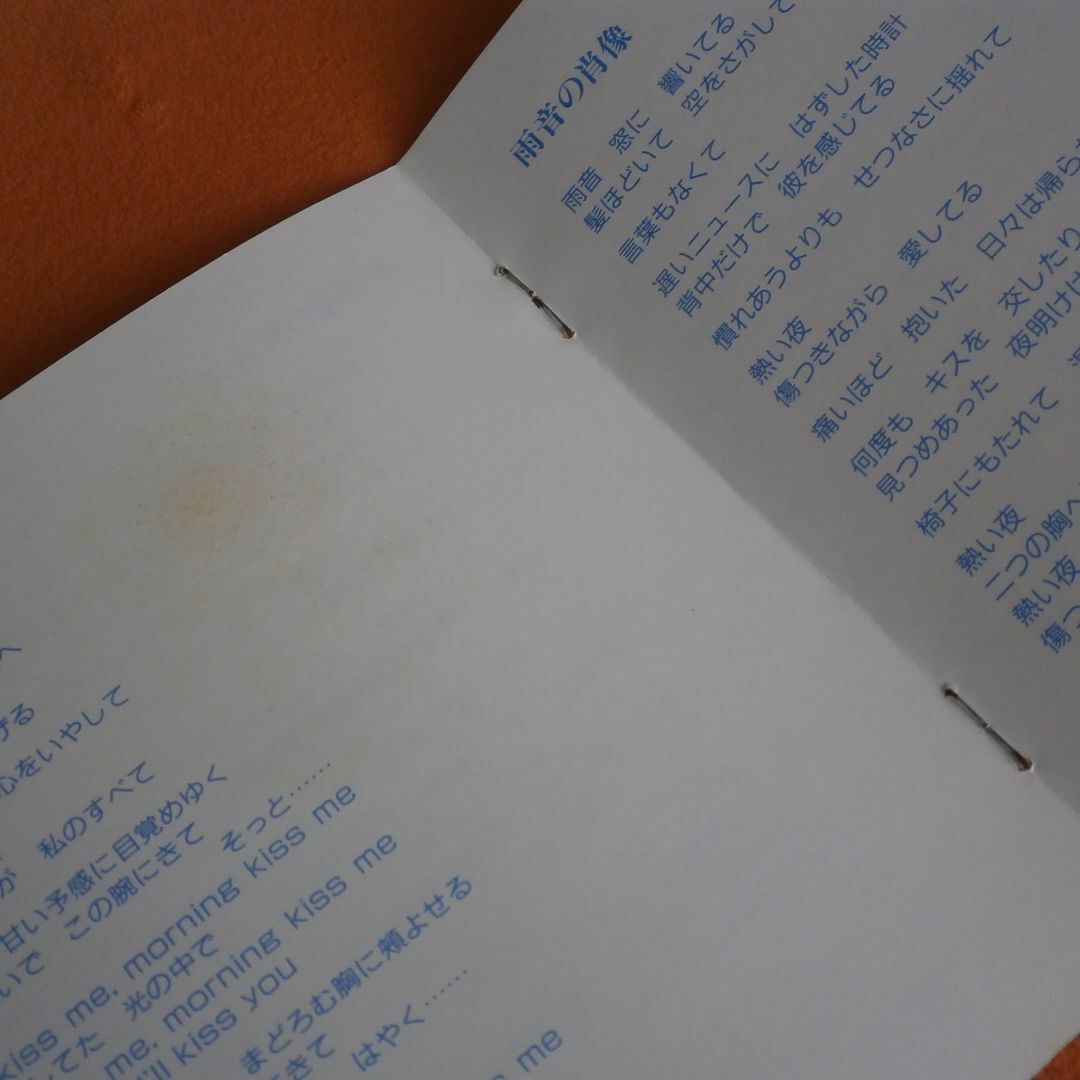 へ
げる
心をいやして
私のすべて
が
甘い予感に目覚めゆく
いで この腕にきて そっと……
kiss me, morning kiss me
してた 光の中で
me, morning kiss me
I'll kiss you
まどろむ胸に頬よせる
きて はやく……
me
雨音の肖像
雨音 窓に 響いてる
髪ほどいて 空をさがして
言葉もなくて
遅いニュースに はずした時計
背中だけで 彼を感じてる
慣れあうよりも せつなさに揺れて
熱い夜
傷つきながら 愛してる
痛いほど 抱いた 日々は帰らな
何度も キスを 交したり
見つめあった 夜明けは
椅子にもたれて
熱い夜
二つの胸へ
熱い夜
傷つ